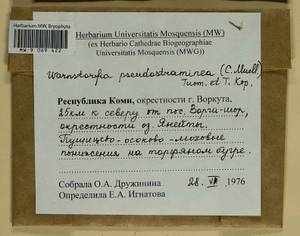 Herbarium MW, Bryophyta
MW 9 069 422
Herbarium Universitatis Mosquensis (MW)
(ex Herbario Cathedrae Biogeographiae
Universitatis Mosquensis (MWG))
Warnstorfia pseudostraminea (C. Muell.)
Tuom. et T. Kop.
Республика Коми, окрестности г. Воркута,
25км к северу от пос. Ворга-шор,
окрестности оз. Янейты.
Пушицево-осоково-моховые
понижения на торфяном бугре.
Собрала О.А. Дружинина 28. VII 1976
Определила Е.А. Игнатова